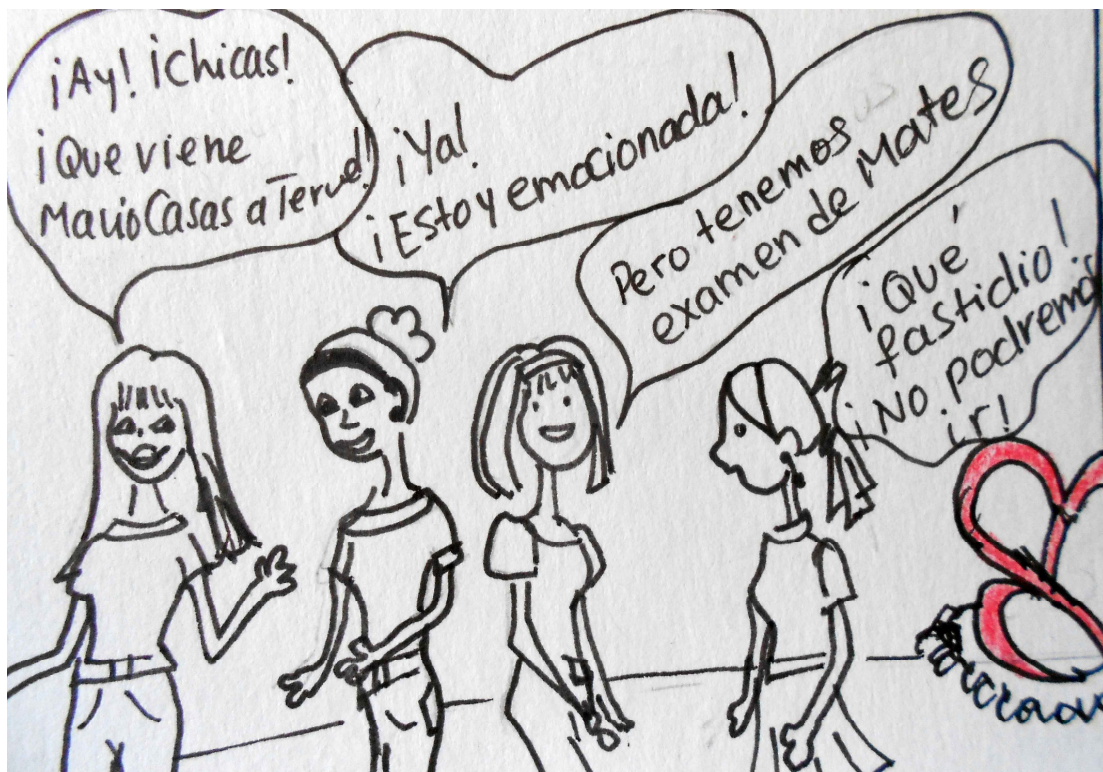 ¡Ay! ¡Chicas!
¡Que viene
Mario Casas a Teruel!
¡Ya!
¡Estoy emocionada!
Pero tenemos
examen de Mates
¡Qué
fastidio!
¡No podremos
ir!